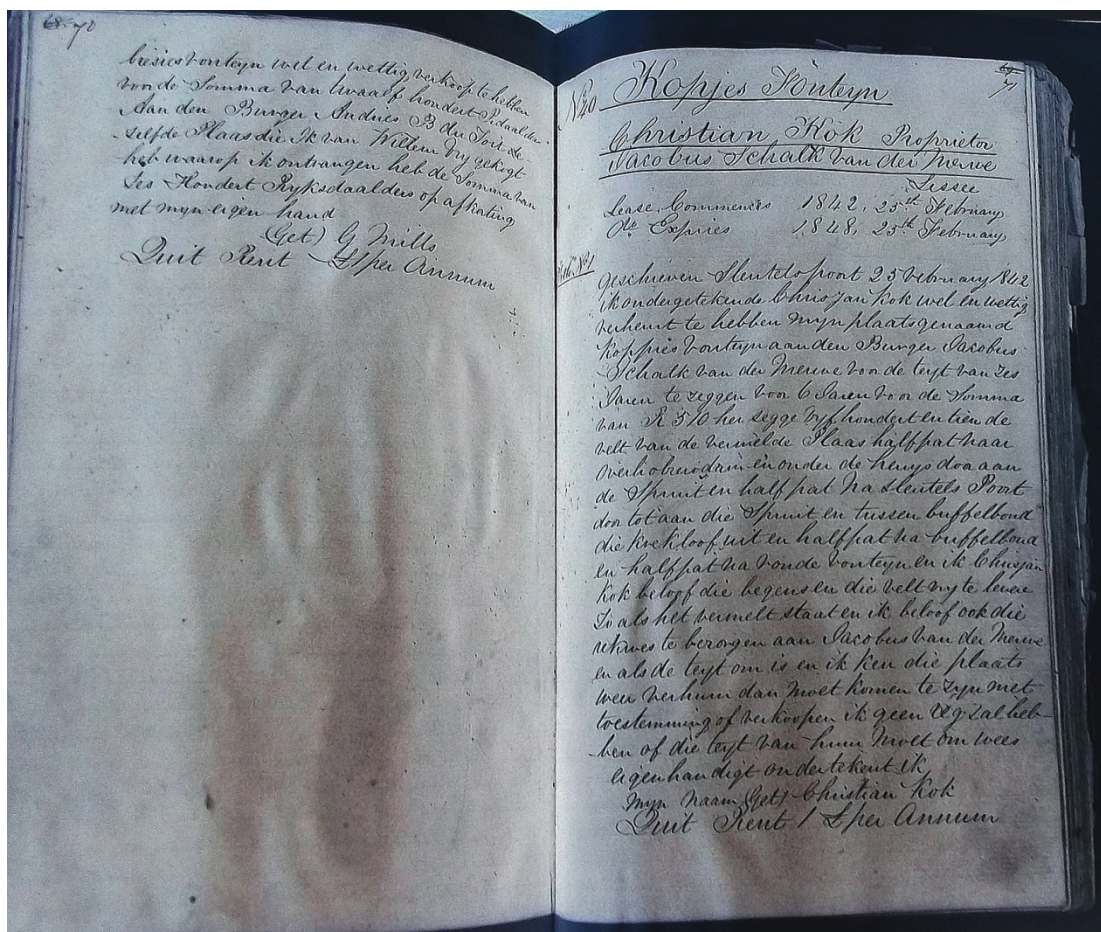 68. 70
biesiesvonteyn wel en wettig verkoop te hebben
voor de Somma van twaalf hondert Rdaalder
Aan den Burger Andries B du Toit de
zelfde Plaas die Ik van Willem Vry gekogt
heb waarop ik ontvangen heb de Somma van
Ses Hondert Ryksdaalders op afkating
met myn eigen hand
(Get) G Mills
Quit Rent £ per Annum
69
71
No 40 Kopjes Fonteyn
Christian Kok Proprietor
Jacobus Schalk van der Merwe
Lessee
Lease Commences 1842, 25th February
Do Expires 1848, 25th February
No 1
geschieven Sleutelspoort 25 vebruary 1842
ik ondergetekende Chrisjan Kok wel en wettig
verheurt te hebben myn plaats genaamd
Koppies vonteyn aan den Burger Jacobus
Schalk van der Merwe voor de teyt van zes
Jaren te zeggen voor 6 Jaren voor de Somma
van R 510 her segge vyf hondert en tien de
velt van de vermelde Plaas halfpat naar
en onder de heuys door aan
de Spruit en half pat na sleutels Poort
door tot aan die Spruit en tussen buffelbout
die kiekloof uit en halfpat na buffelbout
en halfpat na vonde vonteyn en ik Chrisjan
Kok beloof die begens en die velt vry te lever
So als het vermelt staat en ik beloof ook die
rekwes te bezorgen aan Jacobus van der Merwe
en als de teyt om is en ik ken die plaats
weer verhuur dan moet komen te zyn met
toestemming of verkoopen ik geen reg zal heb-
ben of die teyt van huur moet om wees
eigenhandigt ondertekent ik
Myn Naam (Get) Christian Kok
Quit Rent 1 £ per Annum